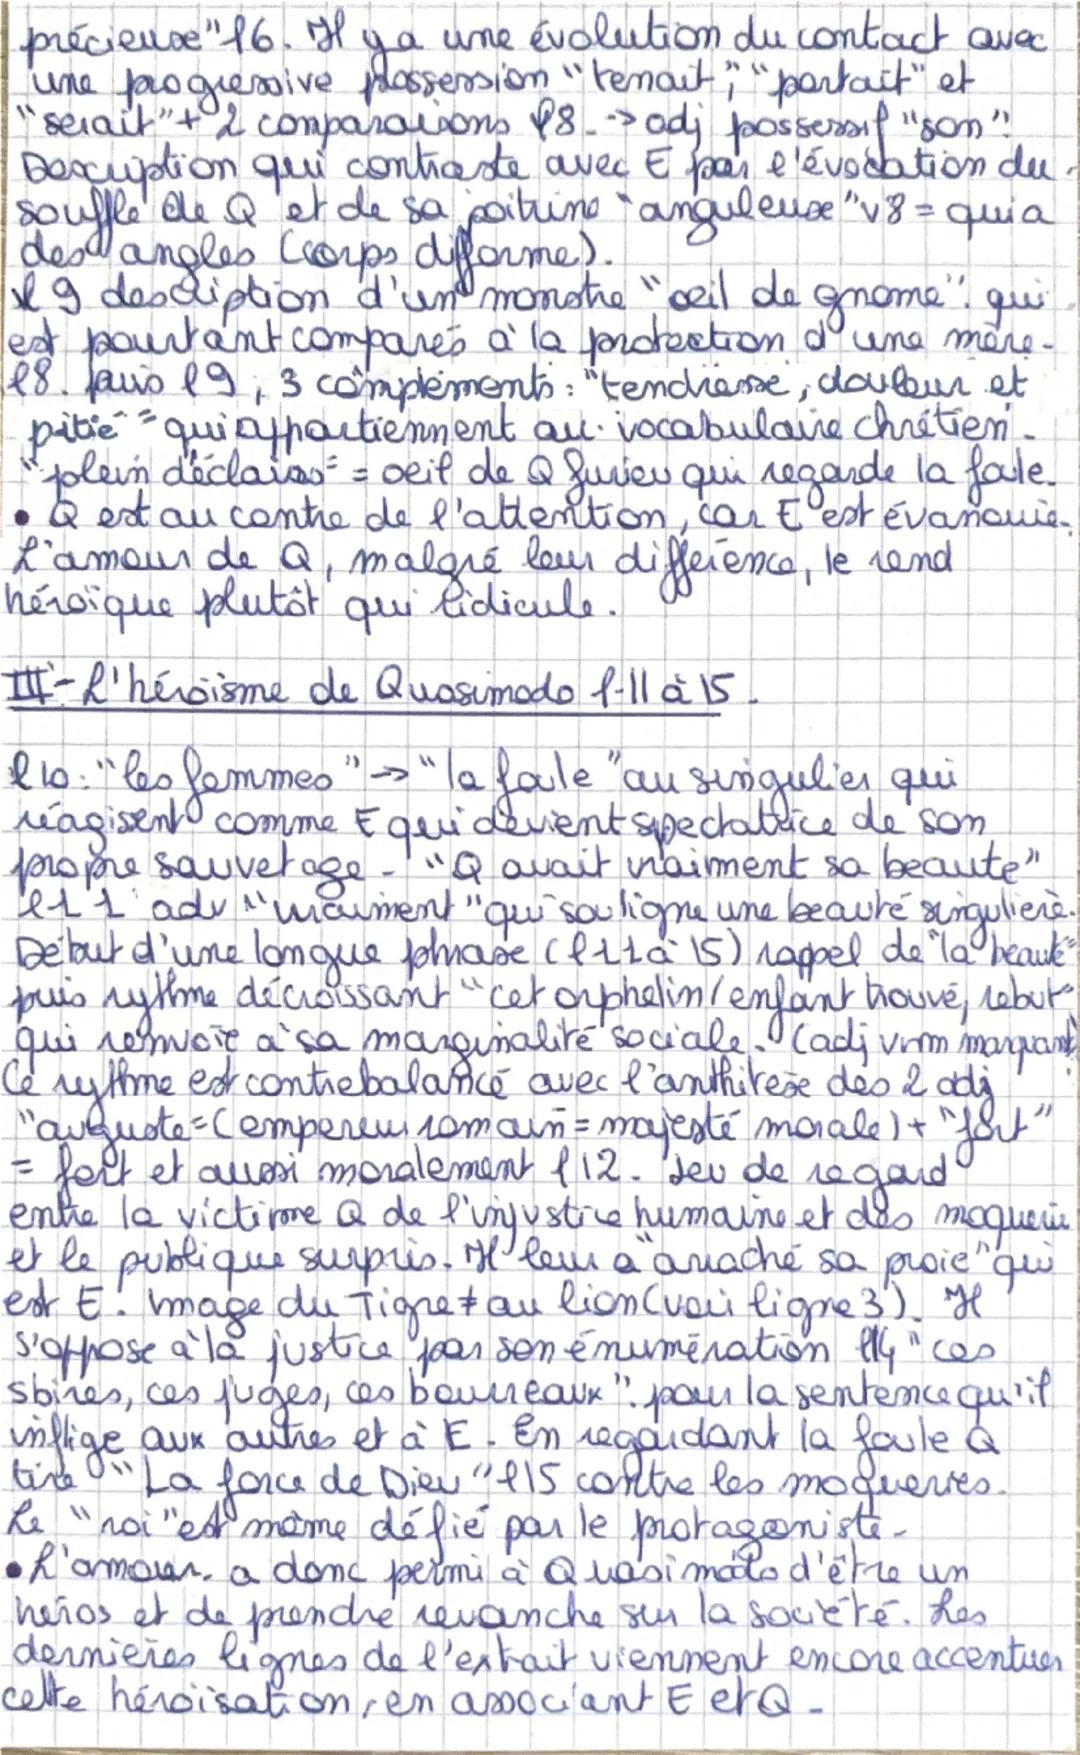 précieuse" l6. Il y a une évolution du contact avec
une progressive possession "tenait", "portait" et
"serait" + 2 comparaisons l8 -> adj possessif "son".
Description qui contraste avec E par l'évocation du
souffle de Q et de sa poitrine "anguleuse" v8 = qui a
des angles (corps difforme).
l 9 description d'un monstre "oeil de gnome". qui
est pourtant comparés à la protection d'une mère.
l8. puis l9, 3 compléments : "tendresse, douleur et
pitié" = qui appartiennent au vocabulaire chrétien.
"plein d'éclairs" = oeil de Q furieu qui regarde la foule.
• Q est au centre de l'attention, car E est évanouie.
L'amour de Q, malgré leur différence, le rend
héroïque plutôt qui ridicule.
III - L'héroïsme de Quasimodo l-11 à 15.
l10: "les femmes" -> "la foule" au singulier qui
réagisent comme E qui devient spectatrice de son
propre sauvetage - "Q avait vraiment sa beauté"
l11 adv "vraiment" qui souligne une beauté singulière.
Début d'une longue phrase (l11 à 15) rappel de "la beauté"
puis rythme décroissant "cet orphelin/enfant trouvé, rebut"
qui renvoie à sa marginalité sociale. (adj vrm marquant)
Ce rythme est contrebalancé avec l'anthitese des 2 adj
"auguste = (empereur romain = majesté morale) + "fort"
= fort et aussi moralement l12. Jeu de regard
entre la victime Q de l'injustice humaine et des moquerie
et le publique surpris. Il leur a "arraché sa proie" qui
est E. Image du Tigre ≠ au lion (voir ligne 3). Il
s'oppose à la justice par son énumération l14 "ces
sbires, ces juges, ces bourreaux". pour la sentence qu'il
inflige aux autres et à E. En regardant la foule Q
tire "La force de Dieu" l15 contre les moqueries.
Le "roi" est même défié par le protagoniste.
• L'amour a donc permi à Quasimodo d'être un
héros et de prendre revanche sur la société. Les
dernières lignes de l'extrait viennent encore accentuer
cette héroïsation, en associant E et Q.